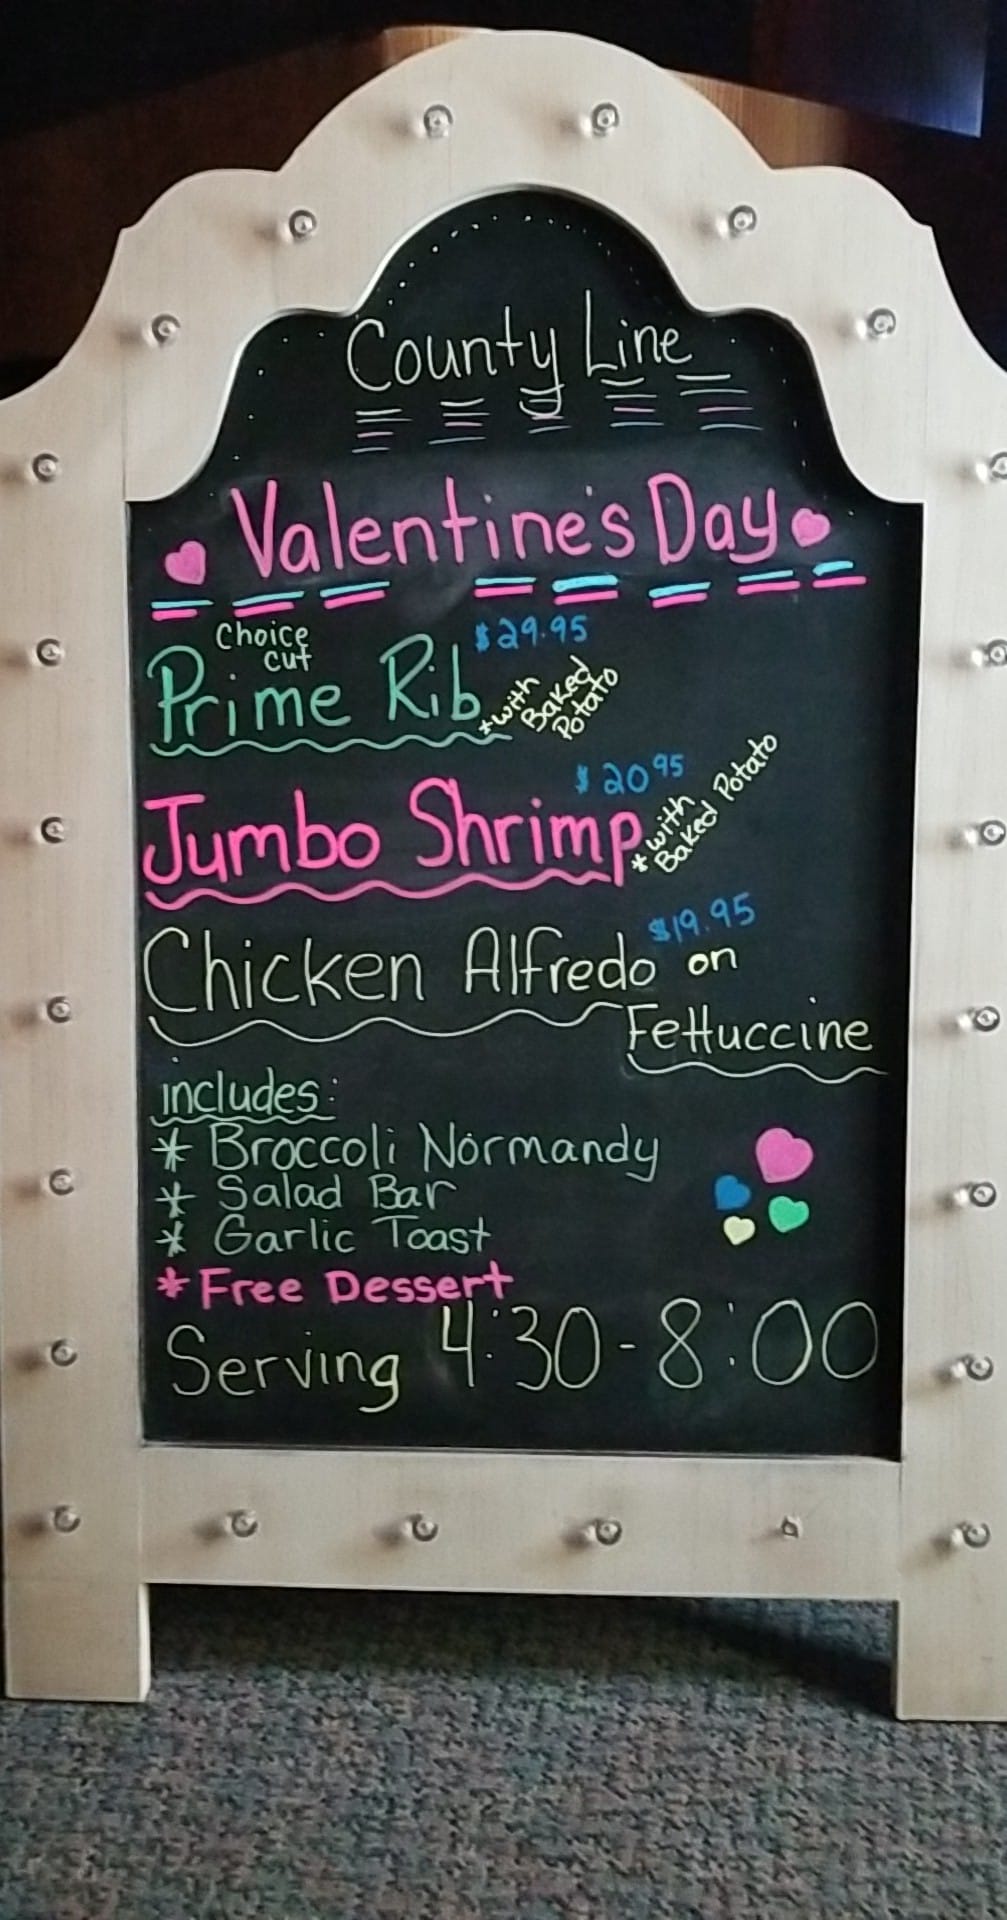 County Line
Valentine's Day
Choice
cut
Prime Rib
$29.95
*with
Baked
Potato
Jumbo Shrimp
$20 95
*with
Baked Potato
Chicken Alfredo on
$19.95
Fettuccine
includes:
* Broccoli Normandy
* Salad Bar
* Garlic Toast
* Free Dessert
Serving 4:30-8:00